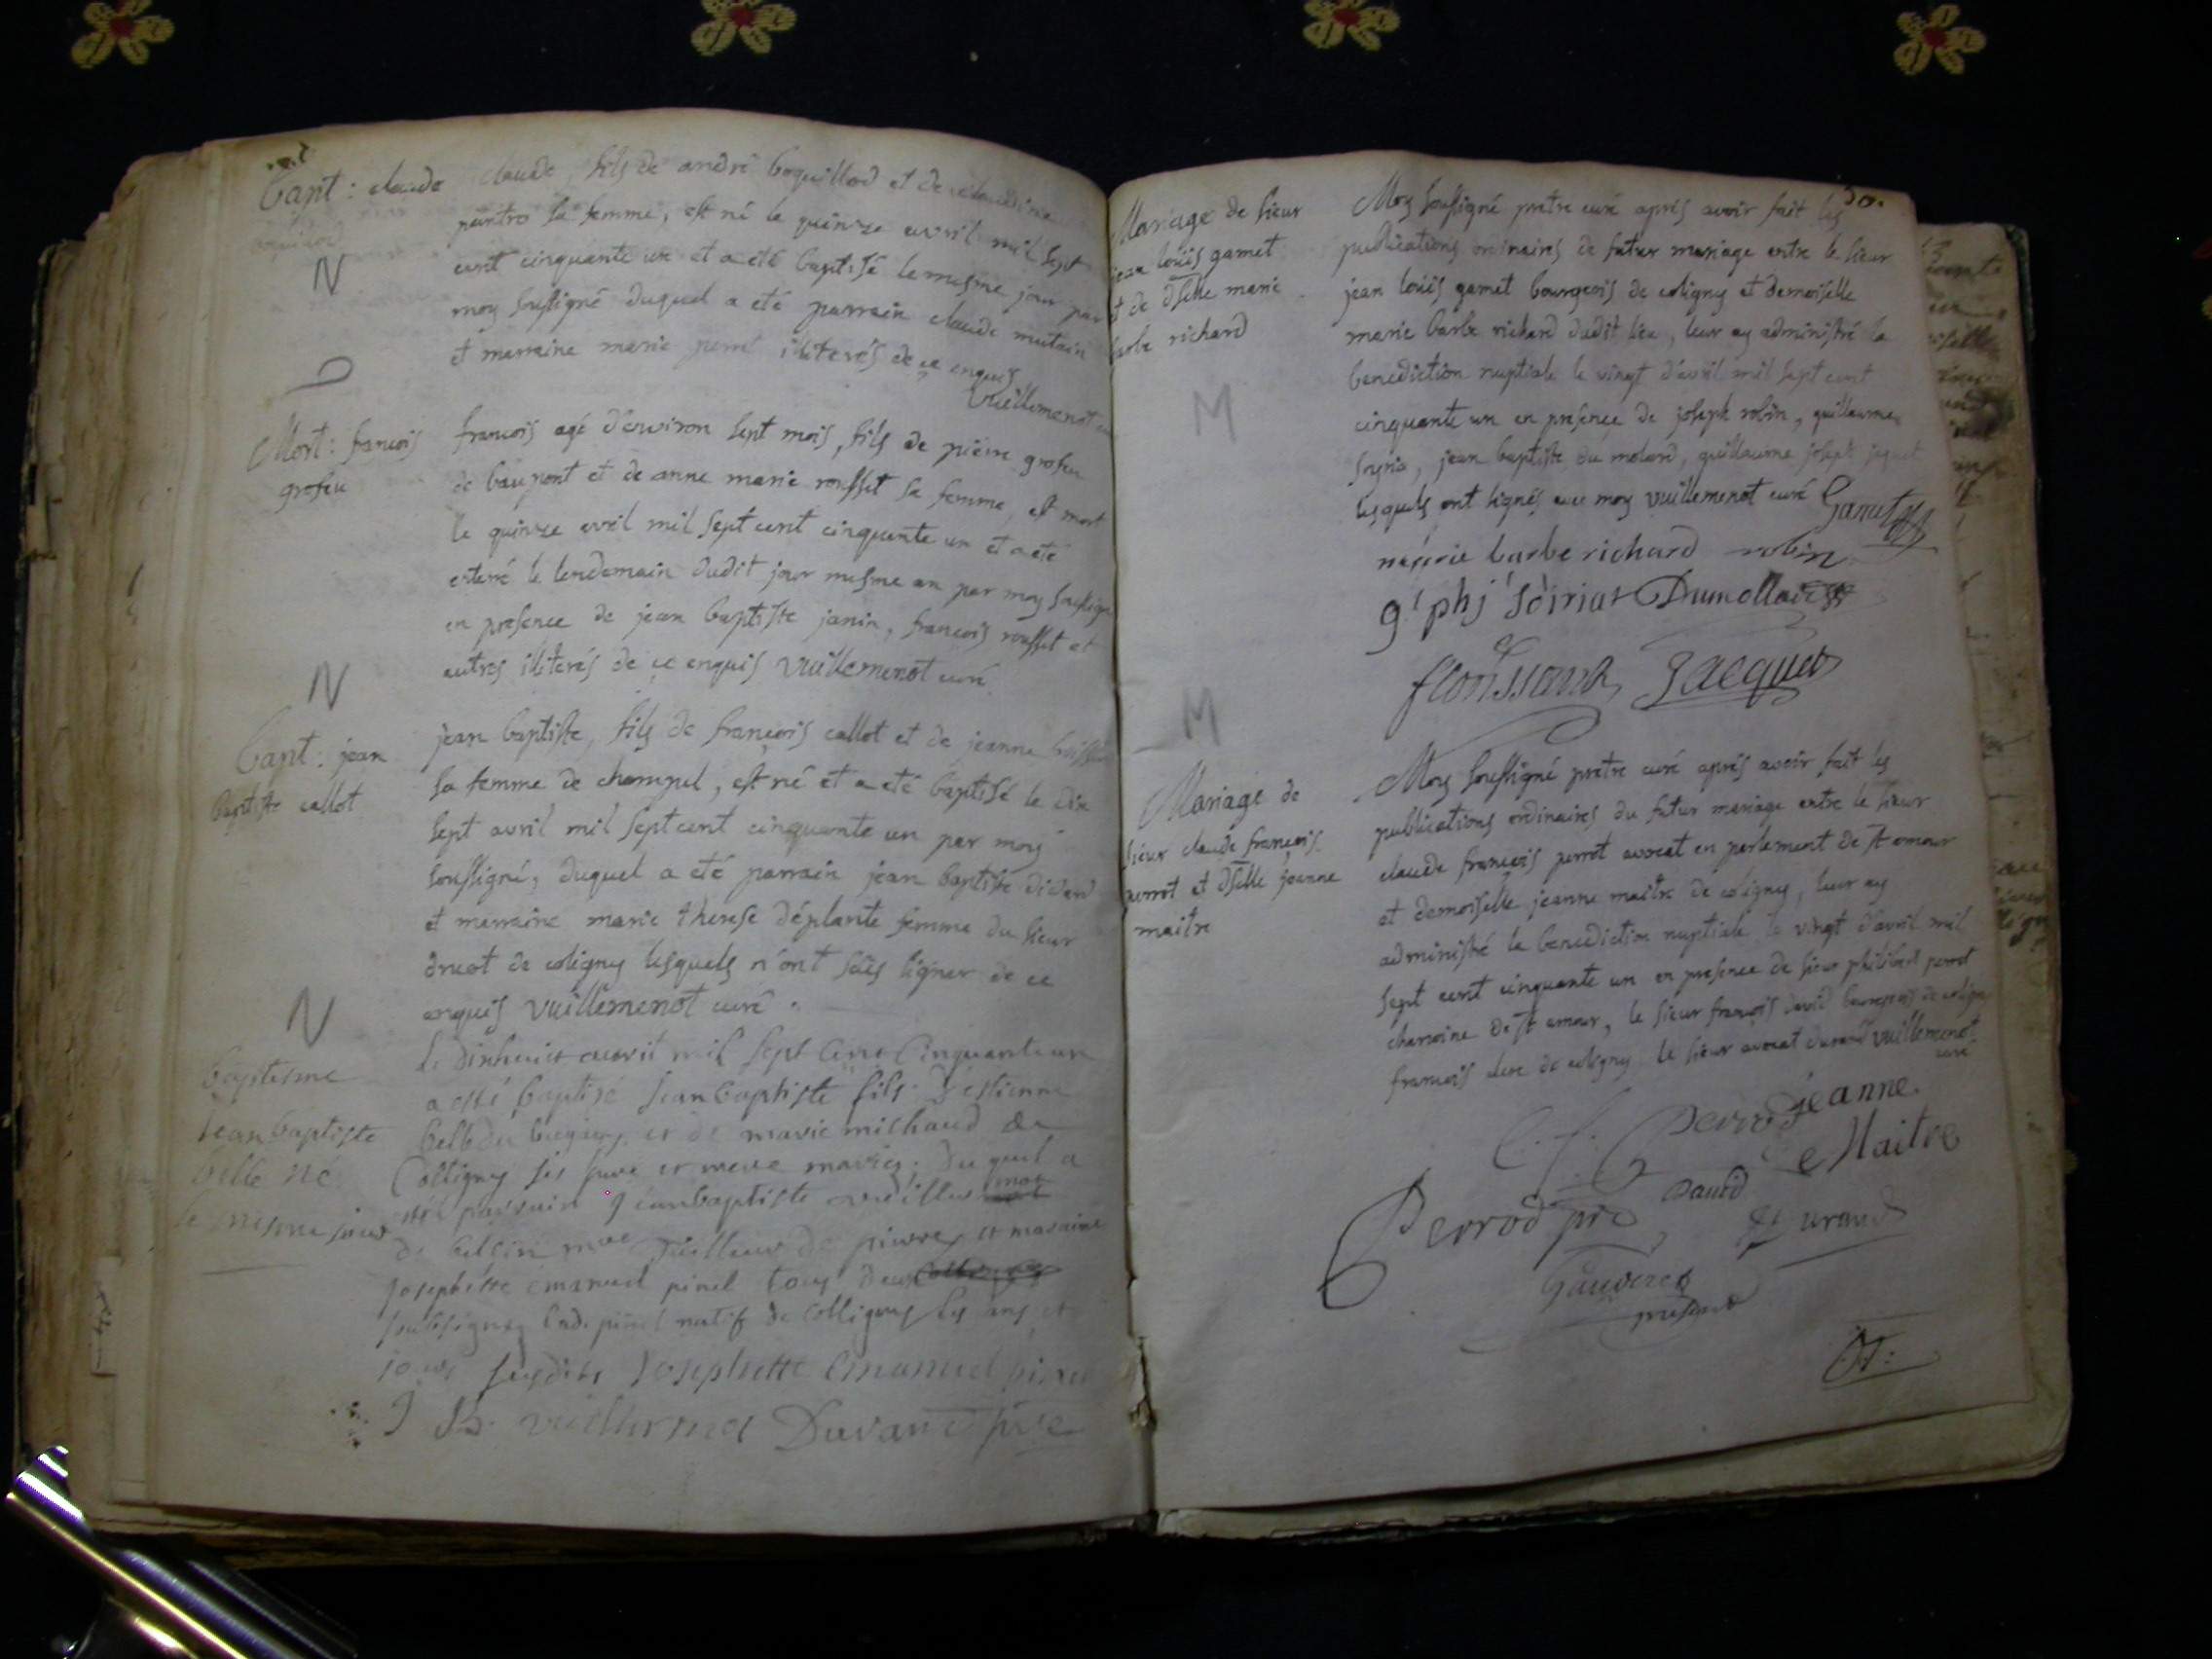 bapt : claude
N
claude, fils de andré boquillod et de claudine
peintres sa femme, est né le quinze avril mil sept
cent cinquante un et a eté baptisé le mesme jour par
moy soussigné duquel a eté parrain claude mutain
et marraine marie perret illiterés de ce enquis
vuillemenot curé
D
Mort : francois
grofeu
francois agé d'environ sept mois, fils de pierre grofeu
de baupont et de anne marie rousset sa femme, est mort
le quinze avril mil sept cent cinquante un et a eté
enterré le lendemain dudit jour mesme an par moy soussigné
en presence de jean baptiste janin, francois rousset et
autres illiterés de ce enquis vuillemenot curé
N
bapt : jean
baptiste callot
jean baptiste, fils de francois callot et de jeanne
sa femme de champel, est né et a eté baptisé le dix
sept avril mil sept cent cinquante un par moy
soussigné, duquel a eté parrain jean baptiste didard
et marraine marie therese déplante femme du sieur
druot de coligny lesquels n'ont sçus signer de ce
enquis vuillemenot curé .
N
baptesme
Jean baptiste
belle né
le mesme jour
le dixhuit avvril mil sept cent cinquante un
a esté baptisé Jean baptiste fils d'estienne
belle du bugey, et de marie michaud de
Colligny ses pere et mere mariés. du quel a
été parrain Jean baptiste vuillermoz
de belsin mre tailleur de pierres et maraine
Josephette emanuel pinel tous deux
soubsignez lad. pinel natif de Colligny les ans et
jours susdits Josephette Emanuel pinel
J B. vuillermoz Durand pre
30.
Mariage de sieur
jean loüis gamet
et de dselle marie
barbe richard
M
Moy soussigné pretre curé aprés avoir fait les
publications ordinaires de futur mariage entre le sieur
jean loüis gamet bourgeois de coligny et demoiselle
marie barbe richard dudit lieu, leur ay administré la
benediction nuptiale le vingt d'avril mil sept cent
cinquante un en presence de joseph robin, guillaume
soyria, jean baptiste du molard, guillaume joseph jaquet
lesquels ont signés avec moy vuillemenot curé Gamet
marie barbe richard robin
gl phj soiriat Dumollard
Jacquet
M
Mariage de
sieur claude francois
perrot et dselle jeanne
maitre
Moy soussigné pretre curé aprés avoir fait les
publications ordinaires du futur mariage entre le sieur
claude francois perrot avocat en parlement de st amour
et demoiselle jeanne maitre de coligny, leur ay
administré la benediction nuptiale le vingt d'avril mil
sept cent cinquante un en presence de sieur philibert perrot
chanoine de st amour, le sieur francois david bourgeois de coligny
francois clerc de coligny le sieur avocat durand vuillemenot
curé
C. f. Perrod jeanne.
Maitre
Perrod pre David
Durand